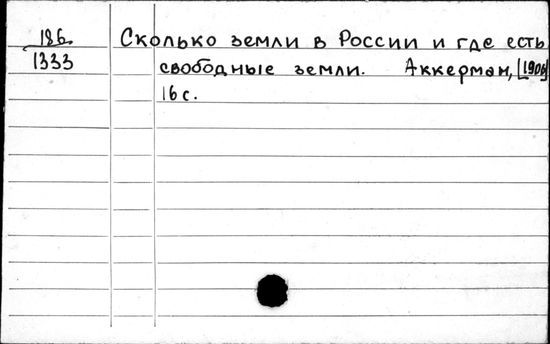 186
1333
Сколько земли в России и где есть
свободные земли. Аккерман, [1906]
16 с.